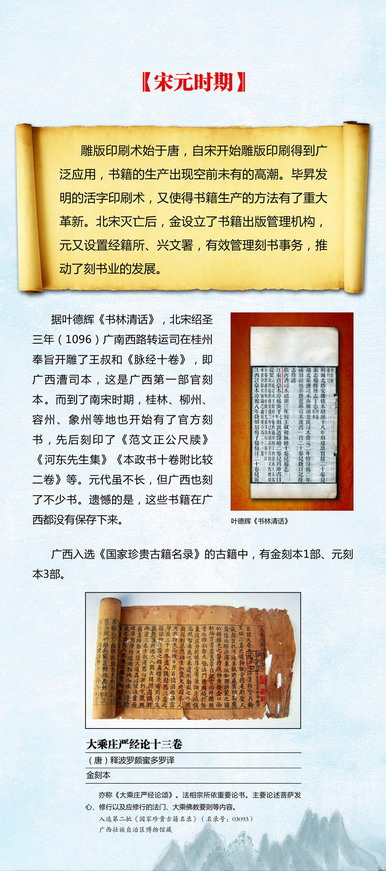 【宋元时期】
雕版印刷术始于唐，自宋开始雕版印刷得到广
泛应用，书籍的生产出现空前未有的高潮。毕昇发
明的活字印刷术，又使得书籍生产的方法有了重大
革新。北宋灭亡后，金设立了书籍出版管理机构，
元又设置经籍所、兴文署，有效管理刻书事务，推
动了刻书业的发展。
据叶德辉《书林清话》，北宋绍圣
三年（1096）广南西路转运司在桂州
奉旨开雕了王叔和《脉经十卷》，即
广西漕司本，这是广西第一部官刻
本。而到了南宋时期，桂林、柳州、
容州、象州等地也开始有了官方刻
书，先后刻印了《范文正公尺牍》
《河东先生集》《本政书十卷附比较
二卷》等。元代虽不长，但广西也刻
了不少书。遗憾的是，这些书籍在广
西都没有保存下来。
叶德辉《书林清话》
广西入选《国家珍贵古籍名录》的古籍中，有金刻本1部、元刻
本3部。
大乘庄严经论十三卷
（唐）释波罗颇蜜多罗译
金刻本
亦称《大乘庄严经论颂》。法相宗所依重要论书。主要论述菩萨发
心、修行以及应修行的法门、大乘佛教要则等内容。
入选第二批《国家珍贵古籍名录》（名录号：03093）
广西壮族自治区博物馆藏